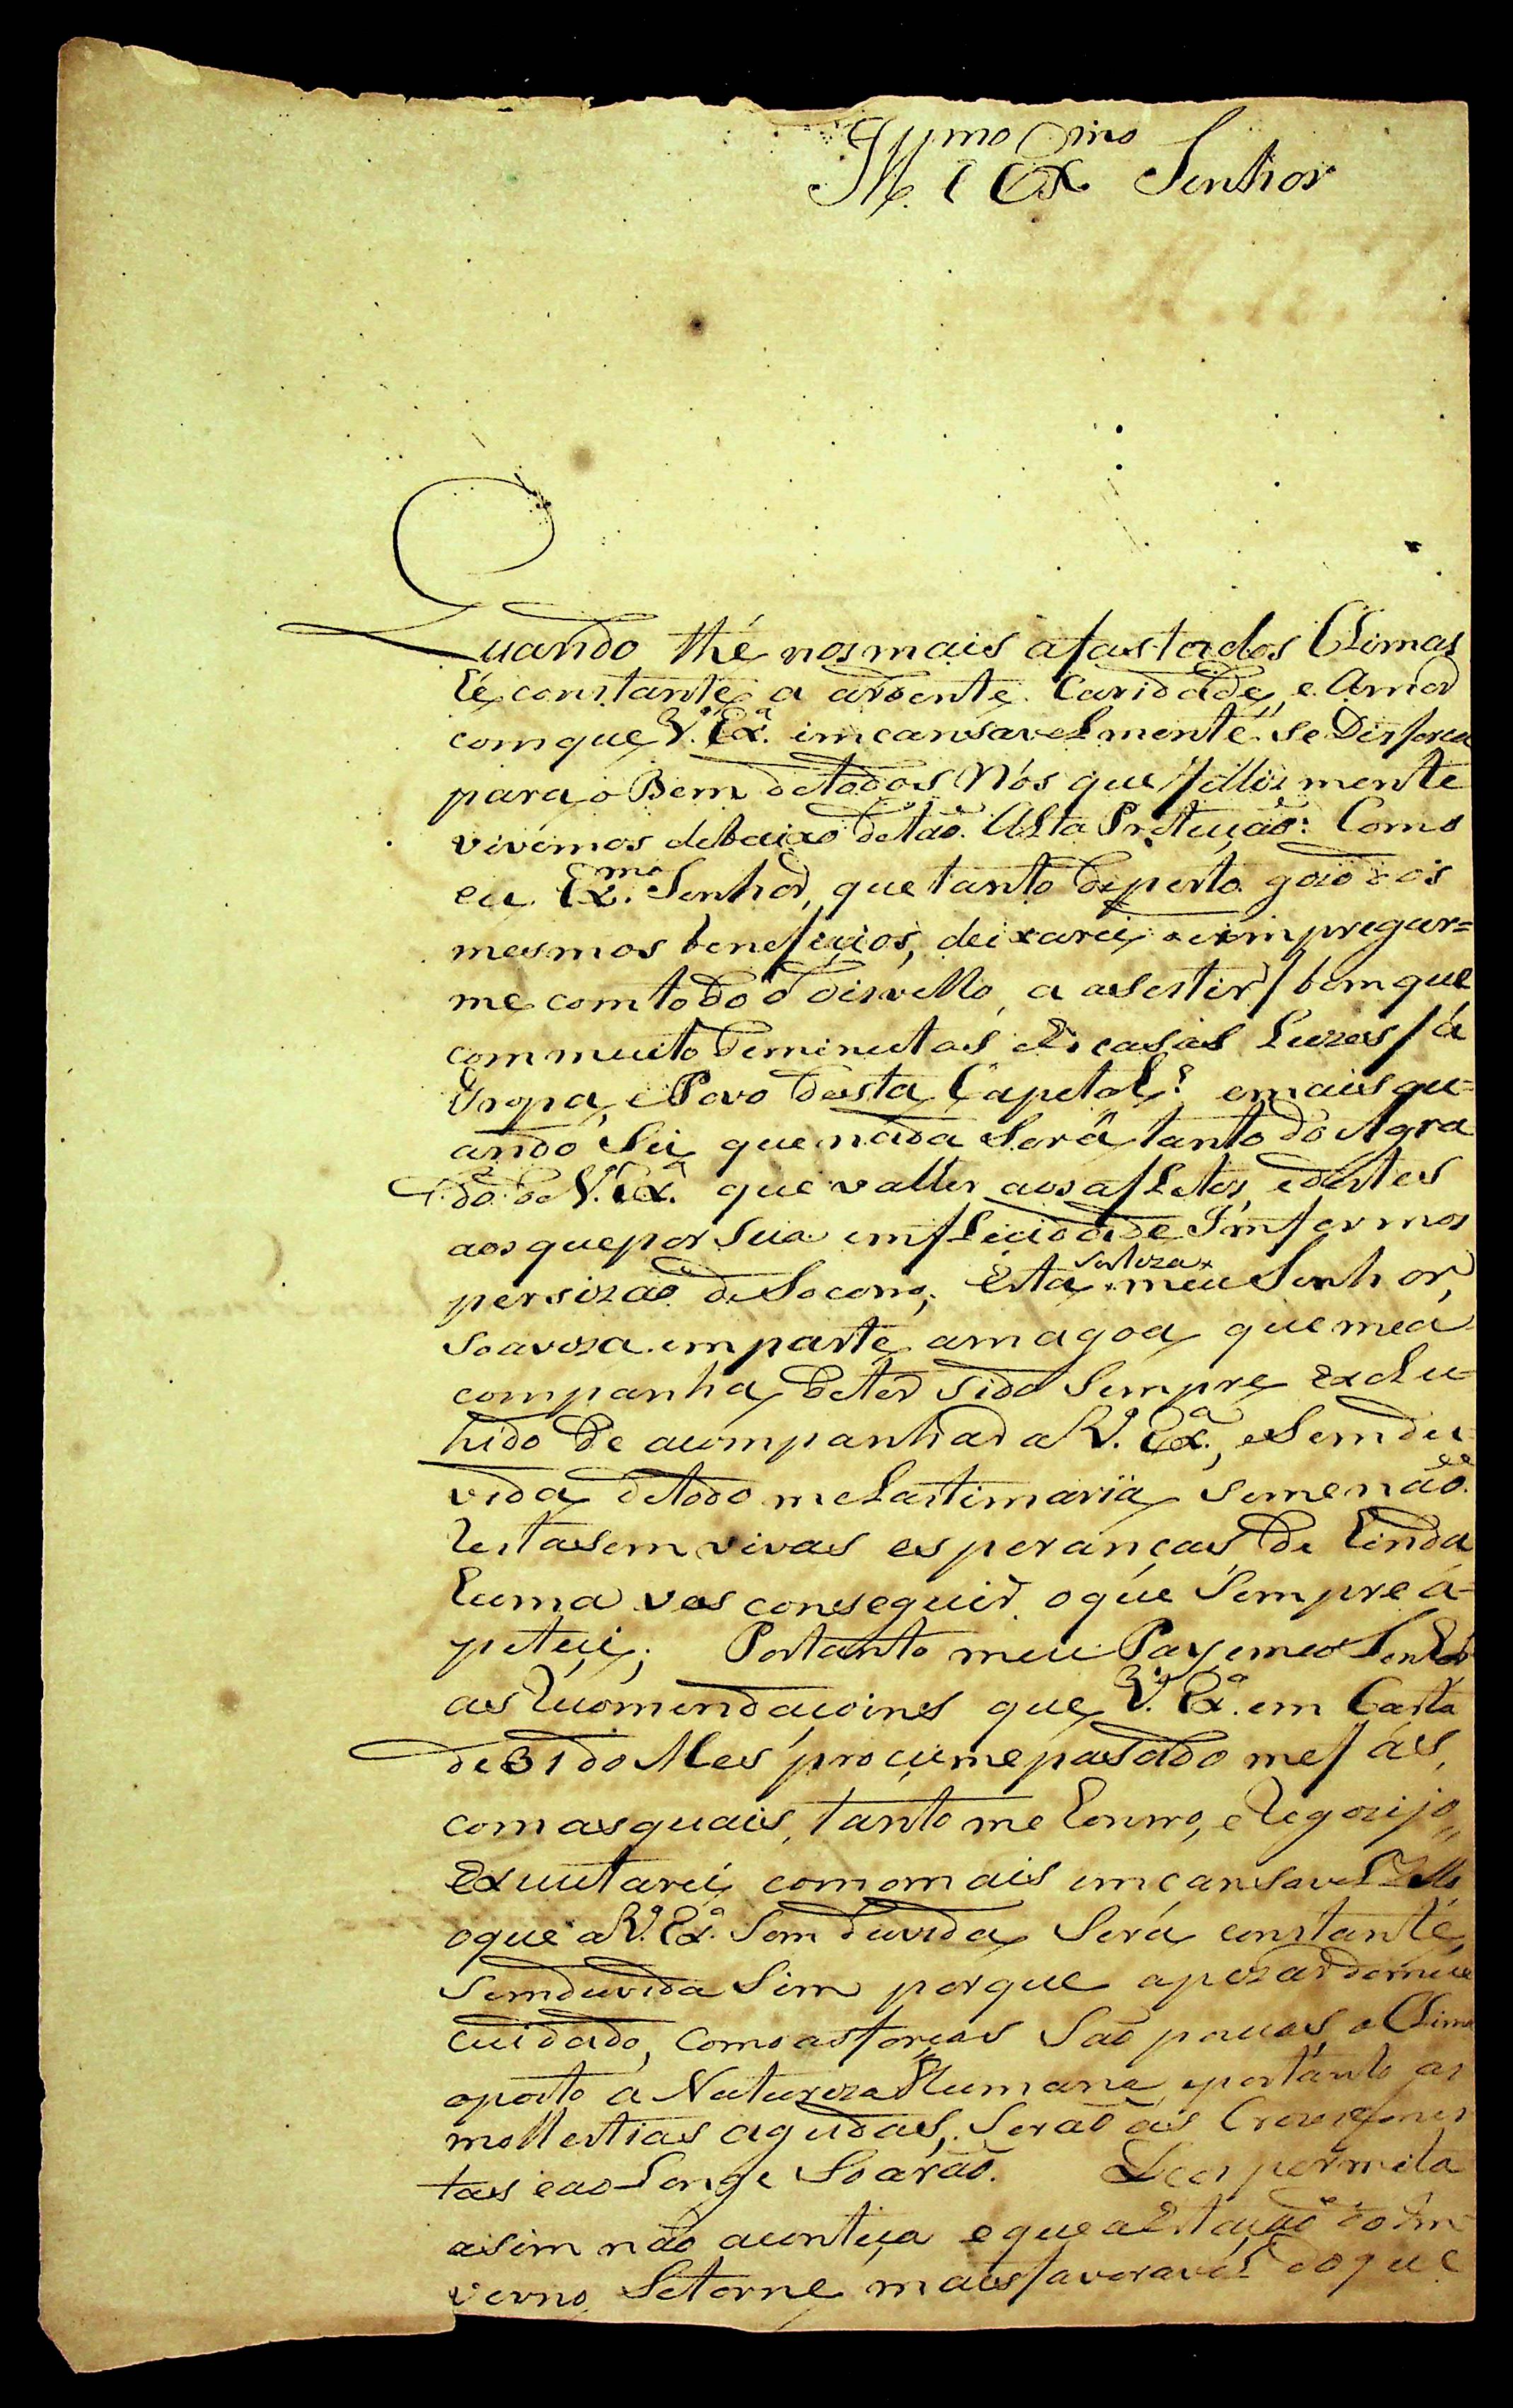 Ill.mo e Ex.mo Senhor
Quando thé nos mais afastados Climas
hé constante a ardente Caridade, e Amor
com que V. Ex.a imcansavelmente se Disforça
para o Bem de todos Nós que fellizmente
vivemos debaixo de tão Alta Proteução: Como
eu Ex.mo Senhor, que tanto de perto gozo dos
mesmos beneficios, deixarei de impregar=
me com todo o disvello, a asestir / bem que
com muito deminutas e escasas Luzes / á
Tropa, e Povo desta Capetal? e mais qu=
ando Sei que nada Será tanto do Agra
do de V. Ex.a que valler aos afletos, e destes
aos que por Sua imfelicidade Imfermos
persizão de Socorro; Esta Serteza meu Senhor,
Soaviza em parte a magoa que me a
companha de ter sido Sempre exclu=
hido de acompanhar a V. Ex.a, e Sem du=
vida de todo me Lastimaria se me não
restasem vivas esperanças de hinda
huma ves conseguir o que Sempre a=
peteci; Portanto meu Pay e meu Senhor
as recomendaçoines que V. Ex.a em Carta
de 31 do Mes procime pasado me fás,
com as quais, tanto me honrro, e regozijo,
executarei com o mais imcansavel Zello
o que a V. Ex.a Sem duvida Será constante,
Sem duvida Sim porque apezar do meu
cuidado, como as forças São poucas, o Clima
oposto á Natureza Humana, e portanto as
mollestias agudas, Serão as
tas e ao Longe Soarão. Deos permita
asim não aconteça e que a Estação do In=
verno Se torne mais favoravel do que